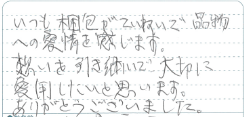 いつも梱包がていねいで品物
への愛情を感じます。
想いを引き継いで大切に
愛用したいと思います。
ありがとうございました。